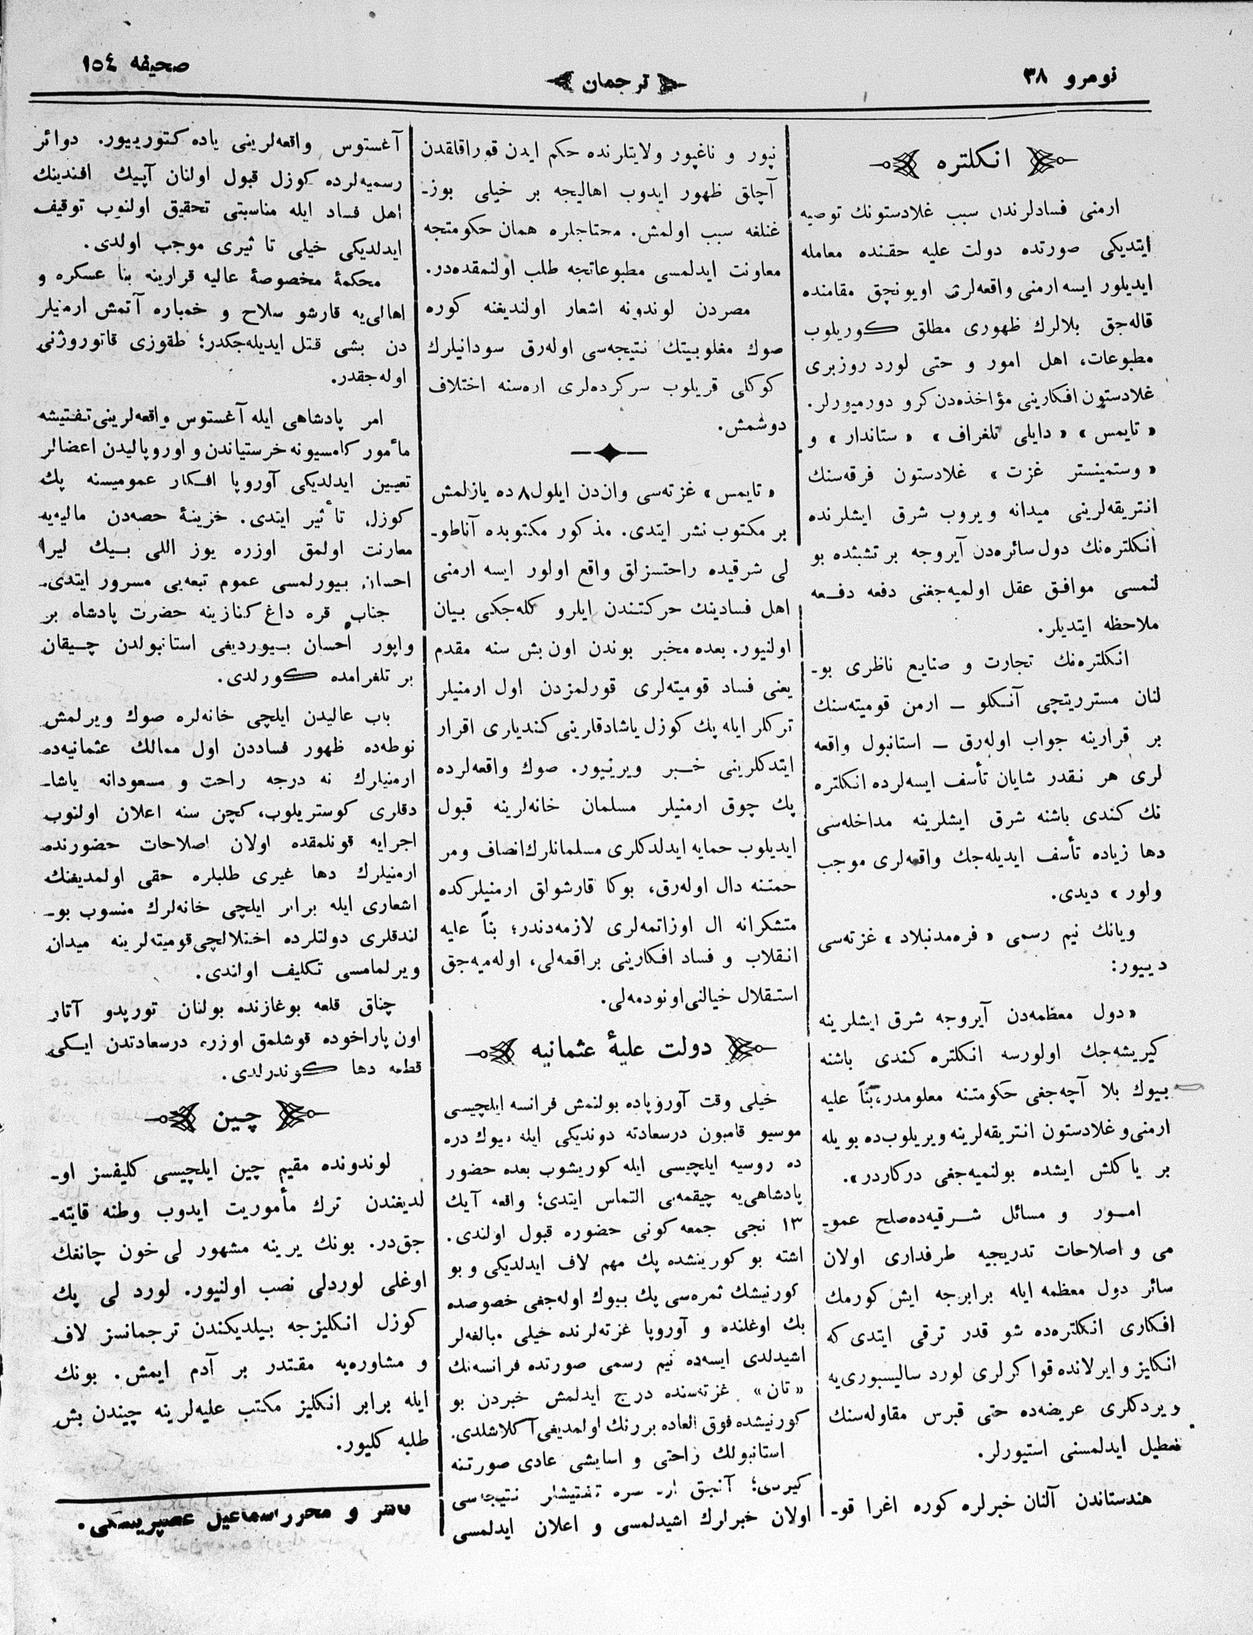 نومرو ۳۸
ترجمان
صحیفه ۱٥٤
انکلتره
ارمنی فسادلرندن سبب غلادستونك توصیه
ایتدیکی صورتده دولت علیه حقنده معامله
ایدیلور ایسه ارمنی واقعه‌لری اویونچق مقامنده
قاله‌جق بلالرك ظهوری مطلق کوریلوب
مطبوعات، اهل امور و حتی لورد روزبری
غلادستون افکارینی مؤاخذه‌دن کرو دورمیورلر.
« تایمس » « دایلی تلغراف » « ستاندار » و
« وستمینستر غزت » غلادستون فرقه‌سنك
انتریقه‌لرینی میدانه ویروب شرق ایشلرنده
انکلتره‌نك دول سائره‌دن آیروجه بر تشبثده بو
لنمسی موافق عقل اولمیه‌جغنی دفعه دفعه
ملاحظه ایتدیلر.
انکلتره‌نك تجارت و صنایع ناظری بو-
لنان مسترریتچی آنکلو — ارمن قومیته‌سنك
بر قرارینه جواب اوله‌رق — استانبول واقعه
لری هر نقدر شایان تأسف ایسه‌لرده انکلتره
نك کندی باشنه شرق ایشلرینه مداخله‌سی
دها زیاده تأسف ایدیله‌جك واقعه‌لری موجب
ولور » دیدی.
ویانك نیم رسمی « فره‌مدنبلاد » غزته‌سی
دییور:
« دول معظمه‌دن آیروجه شرق ایشلرینه
کیریشه‌جك اولورسه انکلتره کندی باشنه
بیوك بلا آچه‌جغی حکومتنه معلومدر، بناً علیه
ارمنی و غلادستون انتریقه‌لرینه ویریلوب‌ده بویله
بر یاکلش ایشده بولنمیه‌جغی درکاردر ».
امور و مسائل شرقیه‌ده صلح عمو-
می و اصلاحات تدریجیه طرفداری اولان
سائر دول معظمه ایله برابرجه ایش کورمك
افکاری انکلتره‌ده شو قدر ترقی ایتدی که
انکلیز و ایرلانده قواکرلری لورد سالیسبوری‌یه
ویردکلری عریضه‌ده حتی قبرس مقاوله‌سنك
تعطیل ایدلمسنی استیورلر.
هندستاندن آلنان خبرلره کوره اغرا قو-
نپور و ناغپور ولایتلرنده حکم ایدن قوراقلقدن
آچلق ظهور ایدوب اهالیجه بر خیلی بوز-
غنلغه سبب اولمش. محتاجلره همان حکومتجه
معاونت ایدلمسی مطبوعاتجه طلب اولنمقده‌در.
مصردن لوندونه اشعار اولندیغنه کوره
صوك مغلوبیتك نتیجه‌سی اوله‌رق سودانیلرك
کوکلی قریلوب سرکرده‌لری اره‌سنه اختلاف
دوشمش.
« تایمس » غزته‌سی وان‌دن ایلول ۸ ده یازلمش
بر مکتوب نشر ایتدی. مذکور مکتوبده آناطو-
لی شرقیده راحتسزلق واقع اولور ایسه ارمنی
اهل فسادینك حرکتندن ایلرو کله‌جکی بیان
اولنیور. بعده مخبر بوندن اون بش سنه مقدم
یعنی فساد قومیته‌لری قورلمزدن اول ارمنیلر
ترکلر ایله پك کوزل یاشادقارینی کندیاری اقرار
ایتدکلرینی خبر ویرنیور. صوك واقعه‌لرده
پك چوق ارمنیلر مسلمان خانه‌لرینه قبول
ایدیلوب حمایه ایدلدکلری مسلمانلرك انصاف ومر
حمتنه دال اوله‌رق، بوکا قارشولق ارمنیلرکده
متشکرانه ال اوزاتمه‌لری لازمه‌دندر؛ بناً علیه
انقلاب و فساد افکارینی براقمه‌لی، اوله‌میه‌جق
استقلال خیالنی اونودمه‌لی.
دولت علیهٔ عثمانیه
خیلی وقت آوروپاده بولنمش فرانسه ایلچیسی
موسیو قامبون درسعادته دوندیکی ایله بیوك دره
ده روسیه ایلچیسی ایله کوریشوب بعده حضور
پادشاهی‌یه چیقمه‌یی التماس ایتدی؛ واقعه آیك
۱۳ نجی جمعه کونی حضوره قبول اولندی.
اشته بو کورینشده پك مهم لاف ایدلدیکی و بو
کورنیشك ثمره‌سی پك بیوك اوله‌جغی خصوصده
بك اوغلنده و آوروپا غزته‌لرنده خیلی مبالغه‌لر
اشیدلدی ایسه‌ده نیم رسمی صورتده فرانسه‌نك
« تان » غزته‌سنده درج ایدلمش خبردن بو
کورنیشده فوق العاده بررنك اولمدیغی آکلاشلدی.
استانبولك راحتی و اسایشی عادی صورتنه
کیردی؛ آنجق ار‍ه صره تفتیشلر نتیجه‌سی
اولان خبرلرك اشیدلمسی و اعلان ایدلمسی
آغستوس واقعه‌لرینی یاده کتورییور. دوائر
رسمیه‌لرده کوزل قبول اولنان آپیك افندینك
اهل فساد ایله مناسبتی تحقیق اولنوب توقیف
ایدلدیکی خیلی تاثیری موجب اولدی.
محکمهٔ مخصوصهٔ عالیه قرارینه بنا عسکره و
اهالی‌یه قارشو سلاح و خمباره آتمش ارمنیلر
دن بشی قتل ایدیله‌جکدر؛ طقوزی قاتوروژنی
اوله‌جقدر.
امر پادشاهی ایله آغستوس واقعه‌لرینی تفتیشه
مأمور کامسیونه خرستیاندن و اوروپالیدن اعضالر
تعیین ایدلدیکی آوروپا افکار عمومیسنه پك
کوزل تأثیر ایتدی. خزینهٔ حصه‌دن مالیه‌یه
معارنت اولمق اوزره یوز اللی بیك لیرا
احسان بیورلمسی عموم تبعه‌یی مسرور ایتدی.
جناب قره داغ کنازینه حضرت پادشاه بر
واپور احسان بیوردیغی استانبولدن چیقان
بر تلغرامده کورلدی.
باب عالیدن ایلچی خانه‌لره صوك ویرلمش
نوطه‌ده ظهور فساددن اول ممالك عثمانیه‌ده
ارمنیلرك نه درجه راحت و مسعودانه یاشا-
دقلری کوستریلوب، کچن سنه اعلان اولنوب
اجرایه قونلمقده اولان اصلاحات حضورنده
ارمنیلرك دها غیری طلبلره حقی اولمدیغنك
اشعاری ایله برابر ایلچی خانه‌لرك منسوب بو-
لندقلری دولتلرده اختلالچی قومیته‌لرینه میدان
ویرلمامسی تکلیف اولندی.
چناق قلعه بوغازنده بولنان تورپدو آتار
اون پاراخوده قوشلمق اوزره درسعادتدن ایکی
قطعه دها کوندرلدی.
چین
لوندونده مقیم چین ایلچیسی کلیفسز او-
لدیغندن ترك مأموریت ایدوب وطنه قایته-
جق‌در. بونك یرینه مشهور لی خون چانغك
اوغلی لوردلی نصب اولنیور. لورد لی پك
کوزل انکلیزجه بیلدیکندن ترجمانسز لاف
و مشاوره‌یه مقتدر بر آدم ایمش. بونك
ایله برابر انکلیز مکتب علیه‌لرینه چیندن بش
طلبه کلیور.
ناشر و محرر اسماعیل غصپرینسکی.